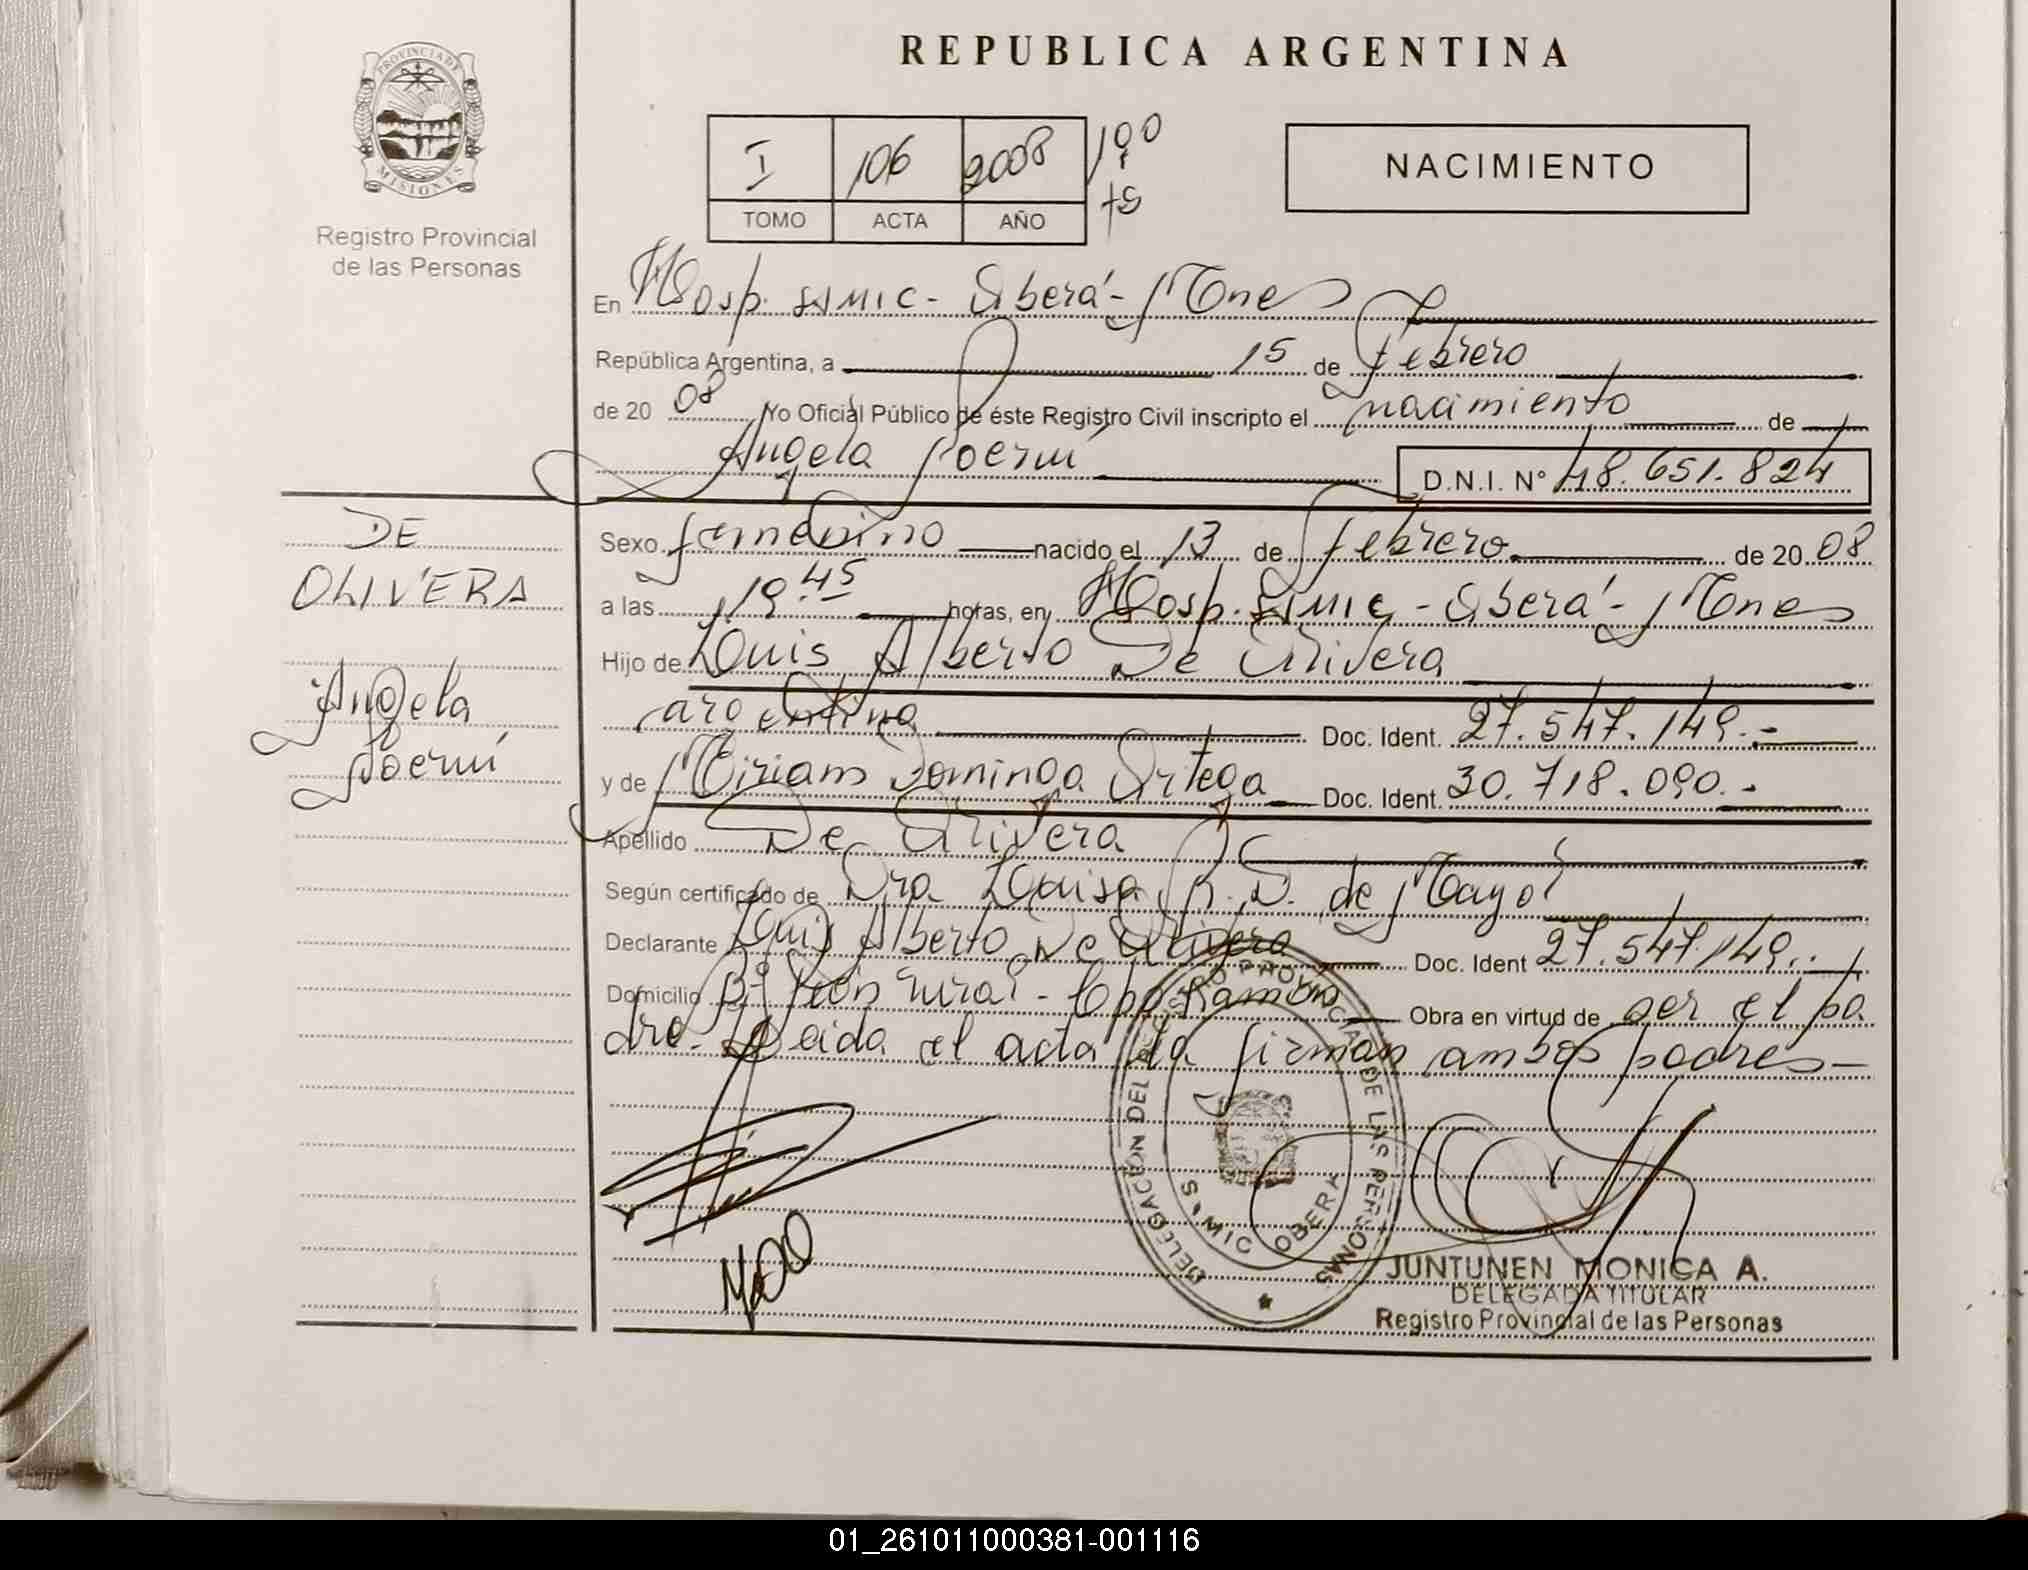 PROVINCIA DE
MISIONES
Registro Provincial
de las Personas
REPUBLICA ARGENTINA
I 106 2008 100
TOMO ACTA AÑO
NACIMIENTO
En Hosp. SAMIC - Oberá - Mnes
República Argentina, a 15 de febrero
de 20 08 Yo Oficial Público de éste Registro Civil inscripto el nacimiento de
Angela Noemí D.N.I. N° 48.651.824
DE
OLIVERA
Angela
Noemí
Sexo femenino nacido el 13 de febrero de 20 08
a las 19.45 horas, en Hosp. SAMIC - Oberá - Mnes
Hijo de Luis Alberto De Olivera
argentino Doc. Ident. 27.547.149.-
y de Miriam Dominga Ortega Doc. Ident. 30.718.090.-
Apellido De Olivera
Según certificado de Dra Luisa R. D. de Mayol
Declarante Luis Alberto De Olivera Doc. Ident 27.547.149.-
Domicilio Bº rural - Cpo Ramón Obra en virtud de ser el pa
dre. Leida el acta la firman ambos padres -
DELEGACION DEL REGISTRO PROVINCIAL DE LAS PERSONAS
SAMIC OBERA
JUNTUNEN MONICA A.
DELEGADA TITULAR
Registro Provincial de las Personas
01_261011000381-001116